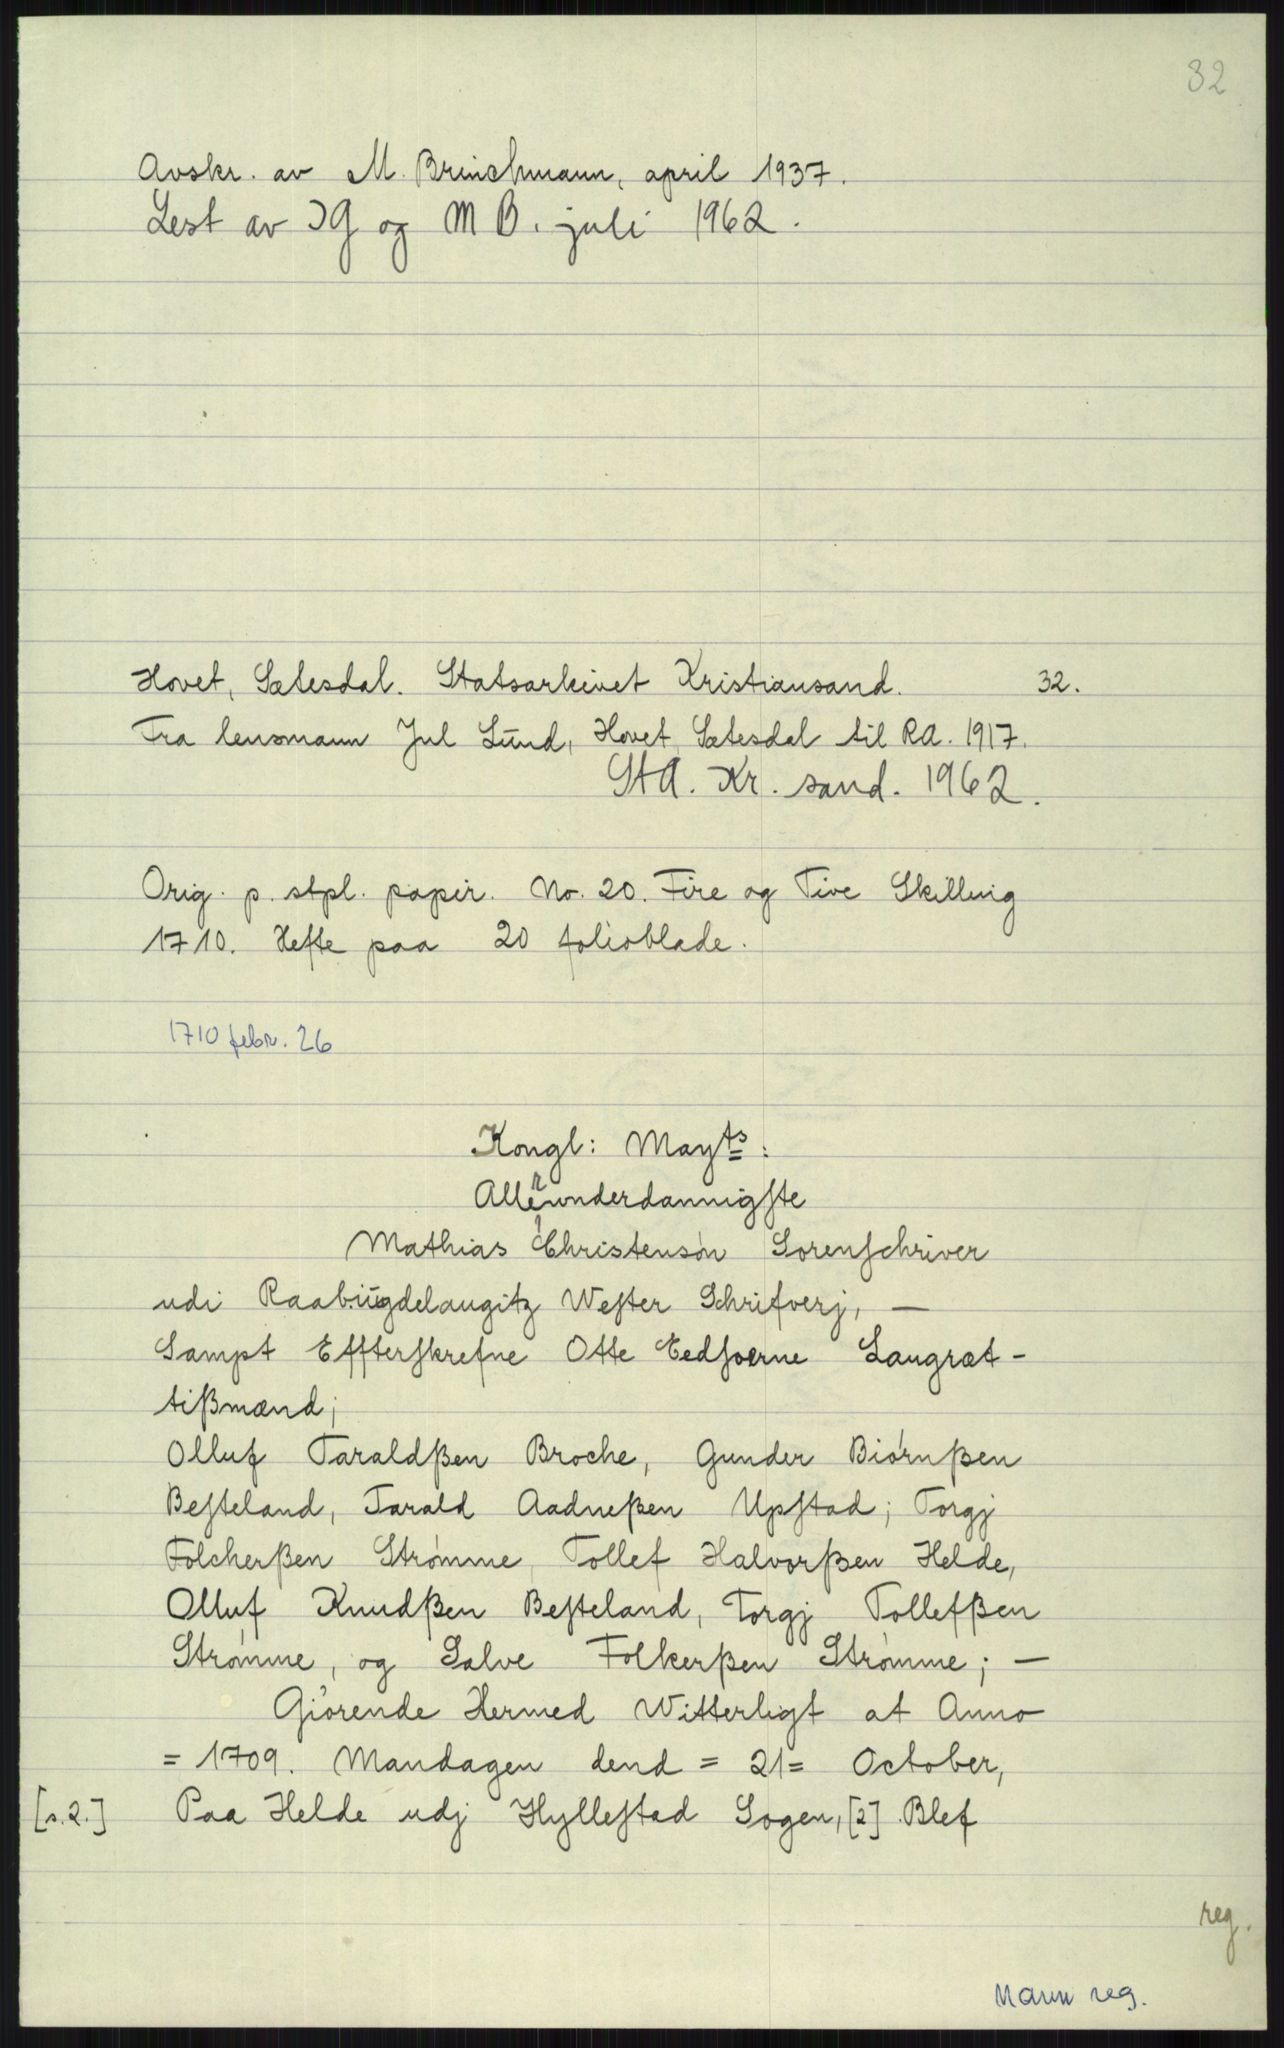 32
Avskr. av M. Brinchmann, april 1937.
Lest av IG og M B. juli 1962.
Hovet, Sætesdal. Statsarkivet Kristiansand. 32.
Fra lensmann Jul Lund, Hovet, Sætesdal til RA. 1917.
StA. Kr. sand. 1962.
Orig. p. stpl. papir. No. 20. Fire og Tive Skilling
1710. Hefte paa 20 folioblade.
1710 febr. 26
Kongl: Mayts:
Allerunderdannigste
Mathias Christensøn Sorenschriver
udi Raabügdelaugitz Wester Schrifverj, —
Sampt Effterskrefne Otte Eedsoerne Laugræt-
tißmænd;
Olluf Taraldßen Broche, Gunder Biørnßen
Besteland, Tarald Aadneßen Upstad; Torgj
Folcherßen Strømme, Tollef Halvorßen Helde,
Olluf Knudßen Besteland, Torgj Tollefßen
Strømme, og Salve Folkerßen Strømme; —
Giørende Hermed Witterligt at Anno
= 1709. Mandagen dend = 21 = October,
[s. 2.] Paa Helde udj Hyllestad Sogen, [2] Blef
reg.
Navn reg.